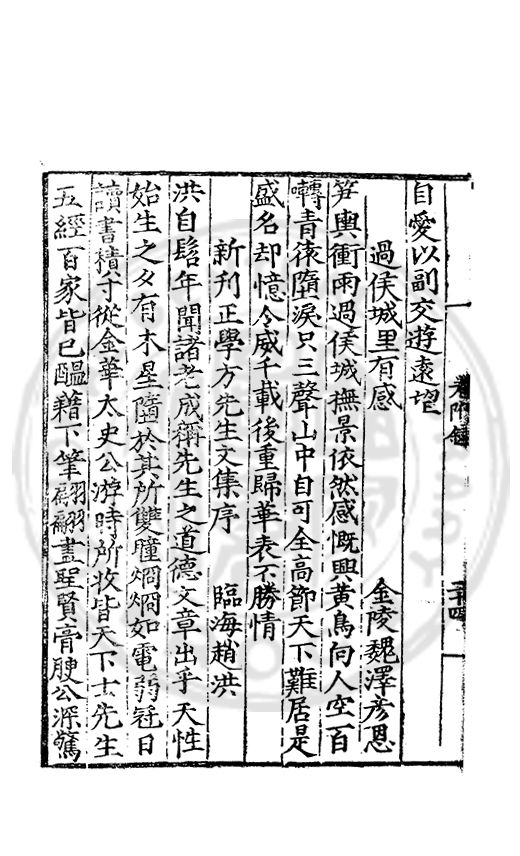 自愛以副交遊遠望
過侯城里有感
金陵魏澤彥恩
笋輿衝雨過侯城撫景依然感慨興黃鳥向人空百
囀青猿墮淚只三聲山中自可全高節天下難居是
盛名却憶令威千載後重歸華表不勝情
新刋正學方先生文集序
臨海趙洪
洪自髫年聞諸老成稱先生之道德文章出乎天性
始生之夕有木星隕於其所雙瞳烱烱如電弱冠日
讀書積寸從金華太史公游時所收皆天下士先生
五經百家皆已醞藉下筆翩翩盡聖賢膏腴公深驚
卷附錄
二十四